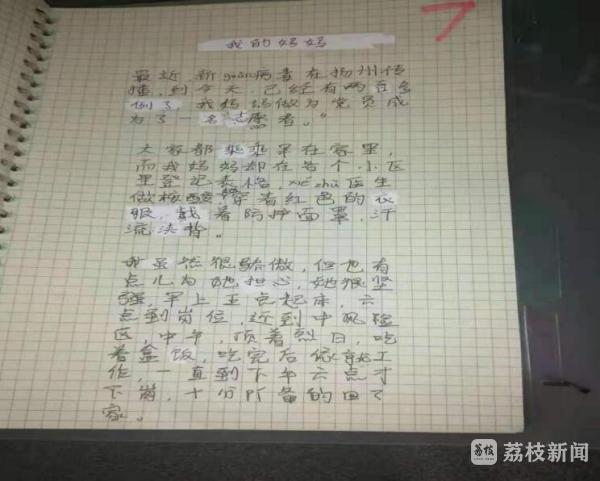 我的妈妈
最近，新guān病毒在扬州传
播，到今天，已经有两百多
例了，我妈妈做为党员成
为了一名志愿者。"
大家都乖乖呆在家里，
而我妈妈却在各个小区
里登记表格，xié zhù医生
做核酸，穿着红色的衣
服，戴着防护面罩，汗
流浃背。
我虽然很骄傲，但也有
点儿为她担心，她很坚
强，早上五点起床，六
点到岗位，近到中风险
区，中午，顶着烈日，吃
着盒饭，吃完后继续工
作，一直到下午六点才
下岗，十分疲备的回了
家。
荔枝
荔枝新闻